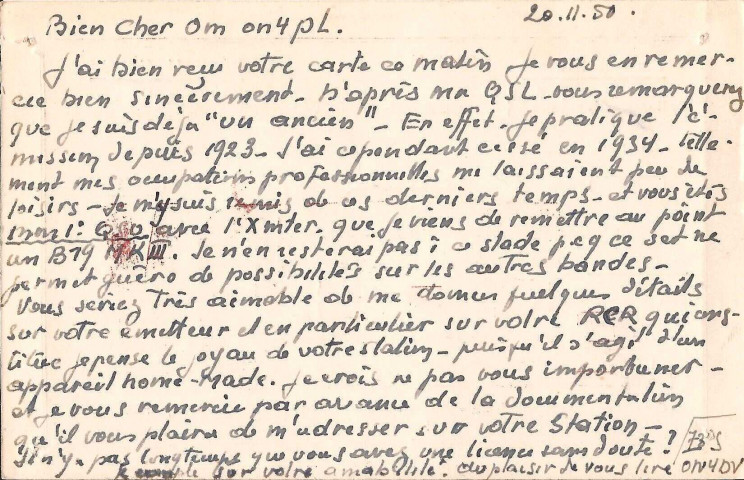 20.11.50.
Bien Cher Om on4pL.
J'ai bien reçu votre carte ce matin je vous en remer-
cie bien sincèrement - D'après ma QSL - vous remarquerez
que je suis déjà "un ancien" - En effet - je pratique l'é-
mission depuis 1923 - J'ai cependant cessé en 1934 - telle-
ment mes occupations professionnelles me laissaient peu de
loisirs - Je m'y suis remis de ces derniers temps - et vous êtes
mon 1° QSO avec l'Xmter. que je viens de remettre au point
un B19 MKIII. Je n'en resterai pas à ce stade pcq ce set ne
permet guère de possibilités sur les autres bandes -
Vous seriez très aimable de me donner quelques détails
sur votre émetteur et en particulier sur votre RCR qui cons-
titue je pense le joyau de votre station - puisqu'il s'agit d'un
appareil home-made. Je crois ne pas vous importuner -
et je vous remercie par avance de la documentation
qu'il vous plaira de m'adresser sur votre Station -
Il n'y a pas longtemps que vous avez une licence sans doute ? 73ds
Je compte sur votre amabilité. Au plaisir de vous lire ON4DV